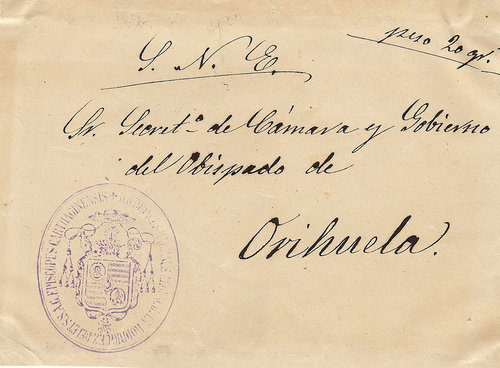 peso 20 gr.
S. N. E.
Sr. Secret.º de Cámara y Gobierno
del Obispado de
Orihuela.
EPISCOPUS CARTHAGINENSIS